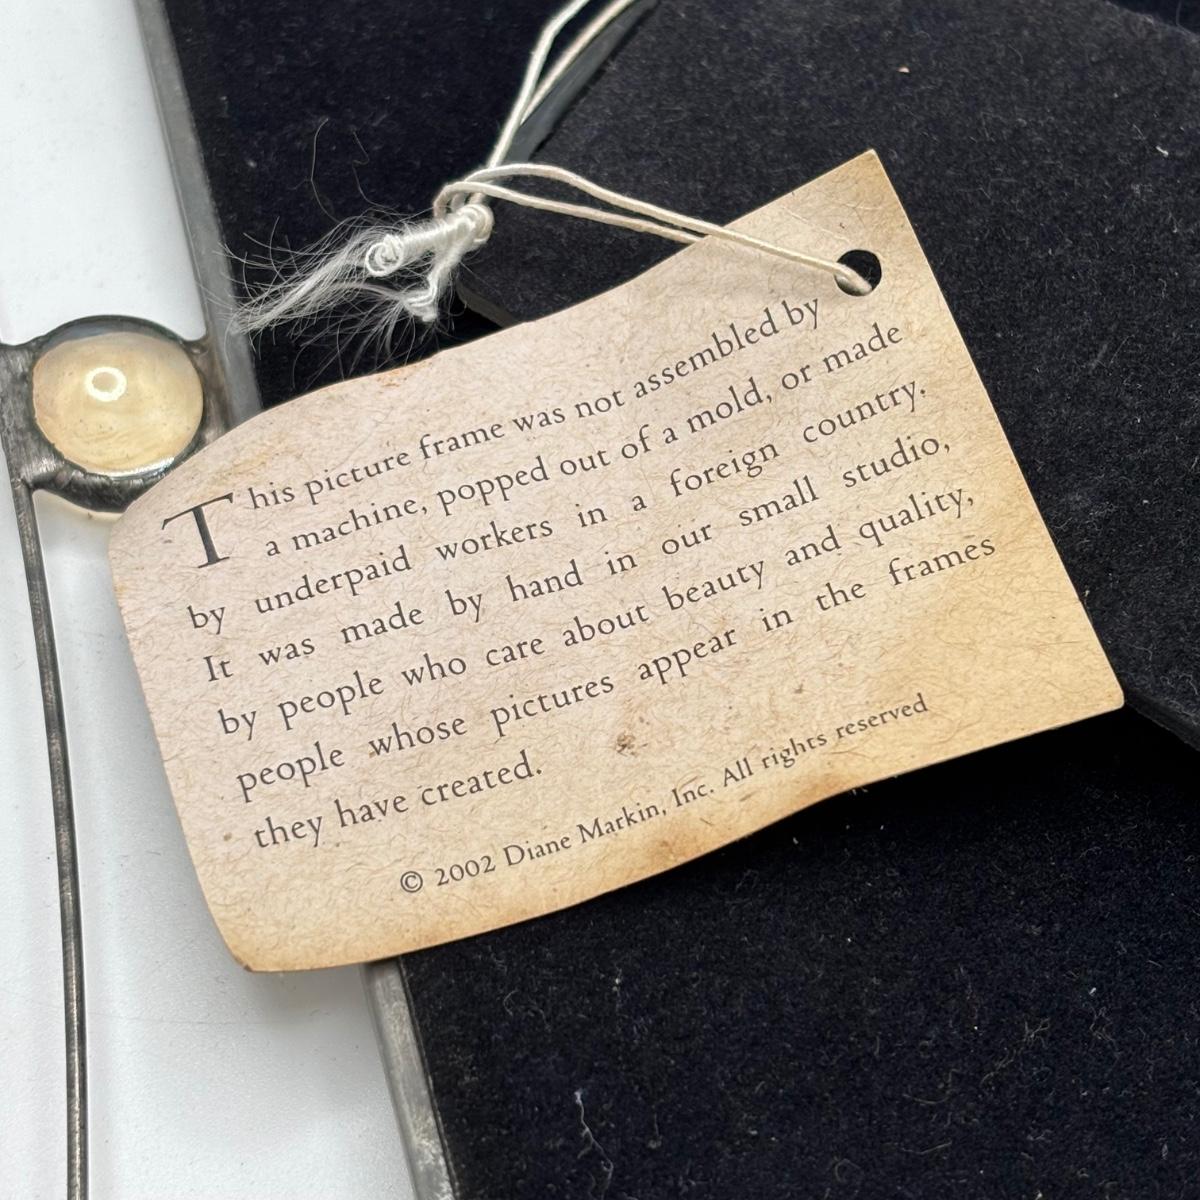 This picture frame was not assembled by
a machine, popped out of a mold, or made
by underpaid workers in a foreign country.
It was made by hand in our small studio,
by people who care about beauty and quality,
people whose pictures appear in the frames
they have created.
© 2002 Diane Markin, Inc. All rights reserved